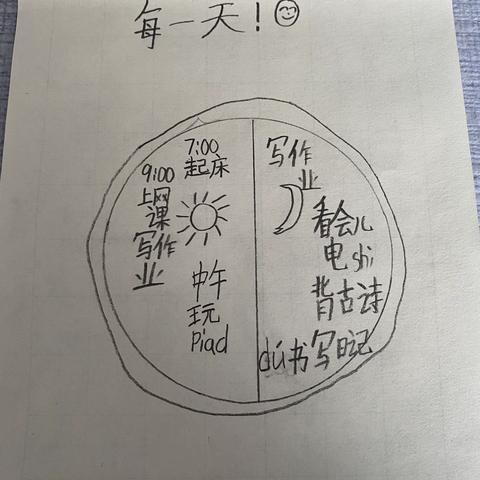 每一天!
7:00
起床
9:00
上网
课
写作
业
中午
玩
Piad
写作
业
看会儿
电shi
背古诗
dú书写日记